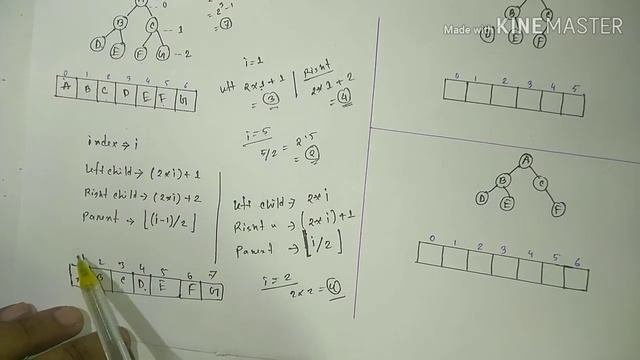 Made with KINEMASTER
B C
D E F G
-- 1
- 2
= 2³-1
= 7
0 1 2 3 4 5 6
A B C D E F G
i=1
left 2×1+1
= 3
Right
2×1+2
= 4
i=5
5/2 = 2.5
= 2
index → i
Left child → (2×i)+1
Right child → (2×i)+2
Parent → ⌊(i-1)/2⌋
left child → 2×i
Right " → (2×i)+1
Parent → ⌊i/2⌋
2 3 4 5 6 7
B C D E F G
i=2
2×2=4
D E F
0 1 2 3 4 5
A
B C
D E F
0 1 2 3 4 5 6